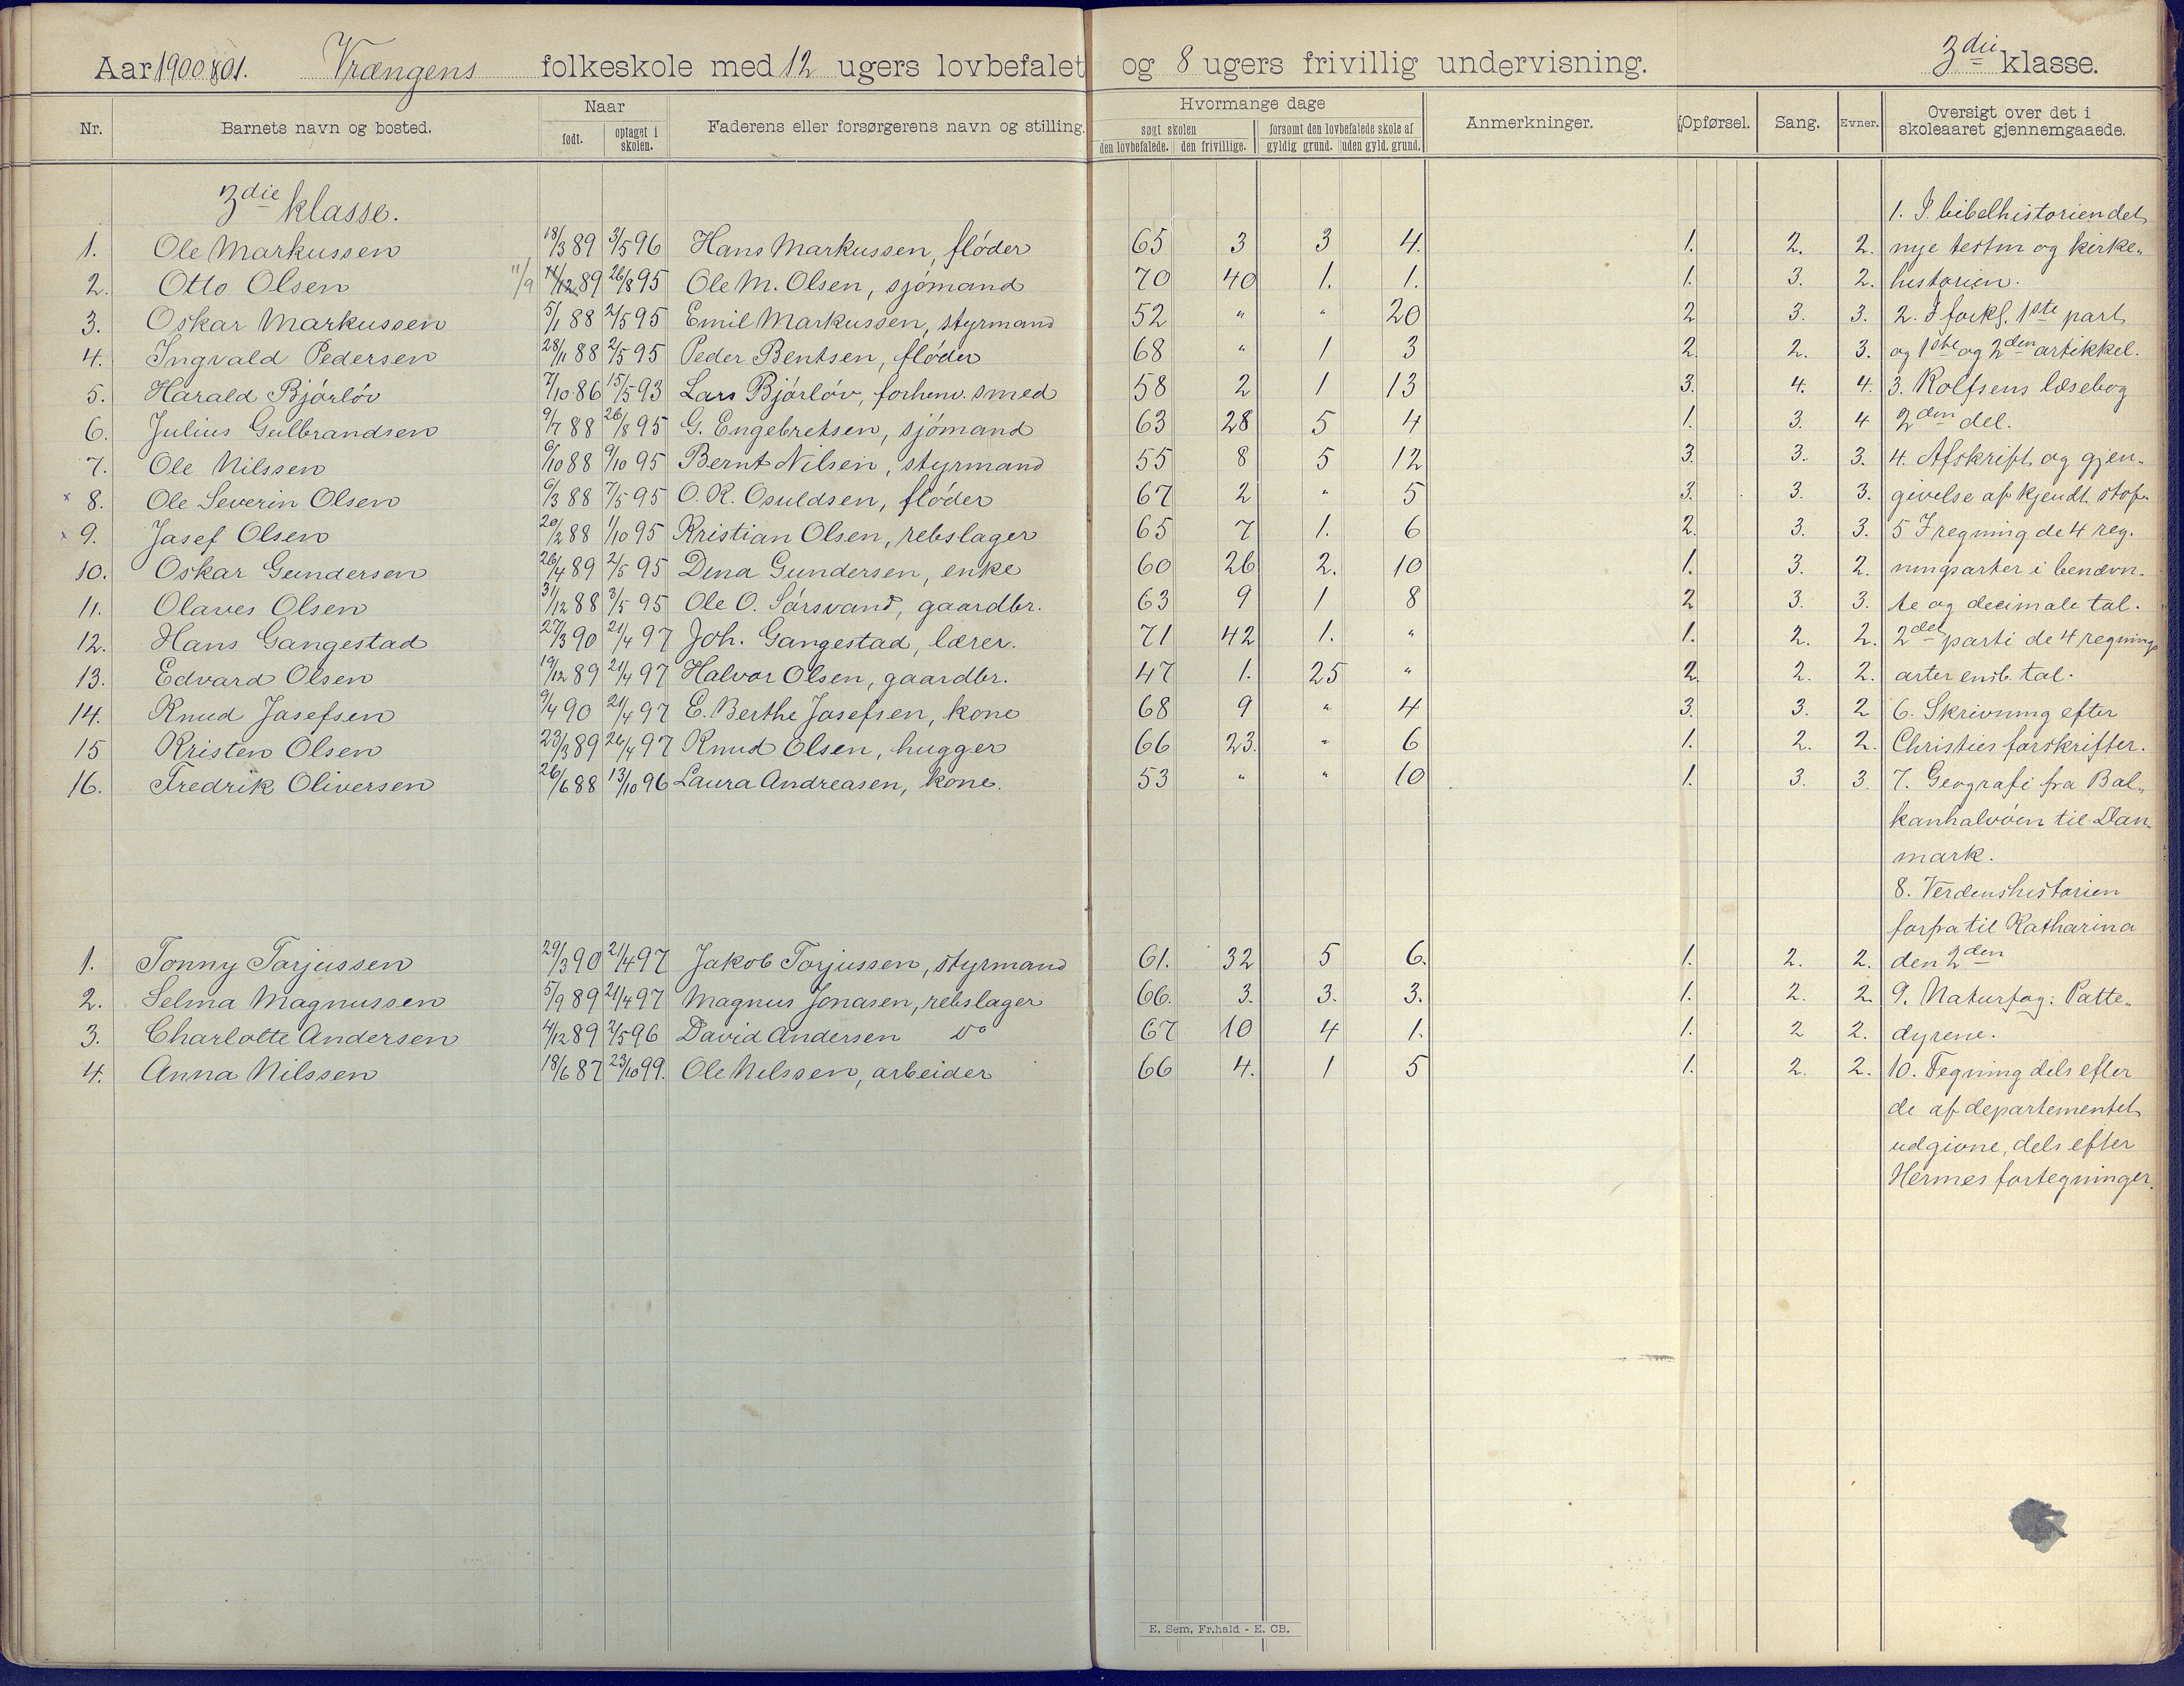 Aar 1900 & 01. Vrængens folkeskole med 12 ugers lovbefalet og 8 ugers frivillig undervisning. 3die klasse.
Nr. Barnets navn og bosted. Naar født. optaget i skolen. Faderens eller forsørgerens navn og stilling. Hvormange dage søgt skolen den lovbefalede. den frivillige. forsømt den lovbefalede skole af gyldig grund. uden gyld. grund. Anmerkninger. Opførsel. Sang. Evner. Oversigt over det i skoleaaret gjennemgaaede.
3die klasse. 1. I bibelhistorien det
1. Ole Markussen 18/3 89 3/5 96 Hans Markussen, fløder 65 3 3 4. 1. 2. 2. nye testm og kirke-
2. Otto Olsen 11/9 11/12 89 26/8 95 Ole M. Olsen, sjømand 70 40 1. 1. 1. 3. 2. historien.
3. Oskar Markussen 5/1 88 2/5 95 Emil Markussen, styrmand 52 " " 20 2 3. 3. 2. I forkl. 1ste part
4. Ingvald Pedersen 28/1 88 2/5 95 Peder Bentsen, fløder 68 " 1 3 2. 2. 3. og 1ste og 2den artikkel.
5. Harald Bjørløv 7/10 86 15/5 93 Lars Bjørløv, forhenv. smed 58 2 1 13 3. 4. 4. 3. Rolfsens læsebog
6. Julius Gulbrandsen 9/7 88 26/8 95 G. Engebretsen, sjømand 63 28 5 4 1. 3. 4 2den del.
7. Ole Nilssen 9/10 88 9/10 95 Bernt Nilsen, styrmand 55 8 5 12 3. 3. 3. 4. Afskrift og gjen-
x 8. Ole Severin Olsen 6/3 88 7/5 95 O. R. Osuldsen, fløder 67 2 " 5 3. 3. 3. givelse af kjendt stof.
x 9. Josef Olsen 20/2 88 1/10 95 Kristian Olsen, rebslager 65 7 1. 6 2. 3. 3. 5 I regning de 4 reg-
10. Oskar Gundersen 26/4 89 2/5 95 Dina Gundersen, enke 60 26 2. 10 1. 3. 2. ningsarter i benævn-
11. Olaves Olsen 31/12 88 3/5 95 Ole O. Sørsvand, gaardbr. 63 9 1 8 2 3. 3. te og decimale tal.
12. Hans Gangestad 27/3 90 21/4 97 Joh. Gangestad, lærer. 71 42 1. " 1. 2. 2. 2det parti de 4 regnings
13. Edvard Olsen 19/12 89 21/4 97 Halvor Olsen, gaardbr. 47 1. 25 " 2. 2. 2. arter ensb. tal.
14. Knud Josefsen 9/4 90 21/4 97 E. Berthe Josefsen, kone 68 9 " 4 3. 3. 2 6. Skrivning efter
15 Kristen Olsen 23/3 89 26/4 97 Knud Olsen, hugger 66 23. " 6 1. 2. 2. Christies forskrifter.
16. Fredrik Oliversen 26/6 88 13/10 96 Laura Andreasen, kone. 53 " " 10 1. 3. 3. 7. Geografi fra Bal-
kanhalvøen til Dan-
mark.
8. Verdenshistorien
forfra til Katharina
1. Tonny Torjussen 29/3 90 21/4 97 Jakob Torjussen, styrmand 61. 32 5 6. 1. 2. 2. den 2den
2. Selma Magnussen 5/9 89 21/4 97 Magnus Jonasen, rebslager 66. 3. 3. 3. 1. 2. 2. 9. Naturfag: Patte-
3. Charlotte Andersen 4/12 89 2/5 96 David Andersen Do 67 10 4 1. 1. 2 2. dyrene.
4. Anna Nilssen 18/6 87 23/10 99. Ole Nilssen, arbeider 66 4. 1 5 1. 2. 2. 10. Tegning dels efter
de af departementet
udgivne, dels efter
Hermes fortegninger.
E. Sem, Fr.hald - E. CB.